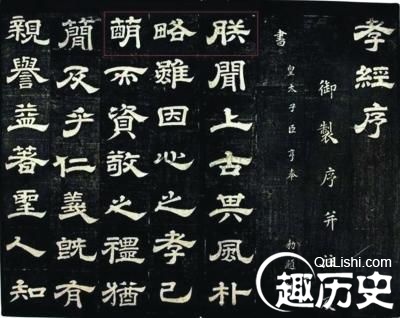 孝經序
御製序并
書
皇太子臣亨奉 勅題
朕聞上古其風朴
略雖因心之孝已
萌而資敬之禮猶
簡及乎仁義既有
親譽益著聖人知
QuLishi.com
趣历史